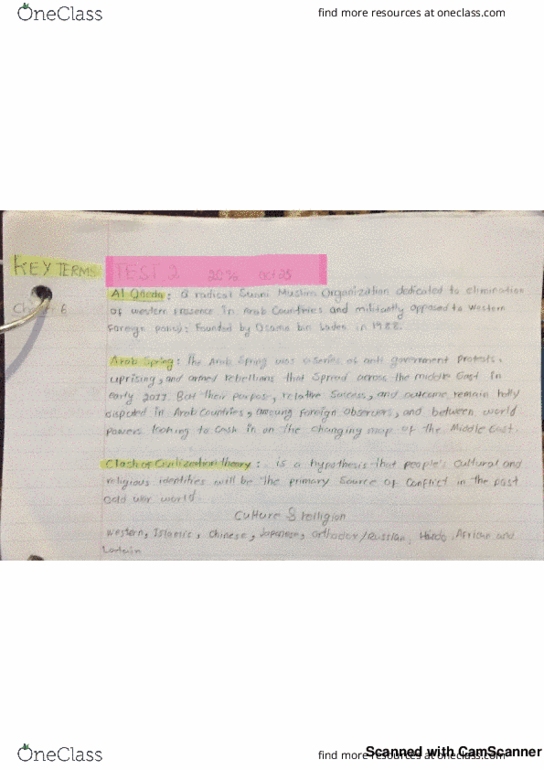 OneClass
find more resources at oneclass.com
KEY TERMS
TEST 2 2036 Oct 25
Al Qaeda: a radical Sunni Muslim Organization dedicated to elimination
of western presence in Arab Countries and militantly opposed to western
foreign policy: Founded by Osama bin Laden in 1988.
Arab Spring: the Arab Spring was a series of anti government protests,
uprising, and armed rebellions that spread across the middle East in
early 2011. But their purpose, relative success, and outcome remain hotly
disputed in Arab Countries, among foreign observers, and between world
powers looking to cash in on the changing map of the Middle East.
Clash of Civilization theory: is a hypothesis that people's cultural and
religious identities will be the primary source of conflict in the post
cold war world.
Culture & religion
western, Islamic, Chinese, Japanese, orthodox/Russian, Hindu, African and
OneClass
find more resources at oneclass.com
Scanned with CamScanner